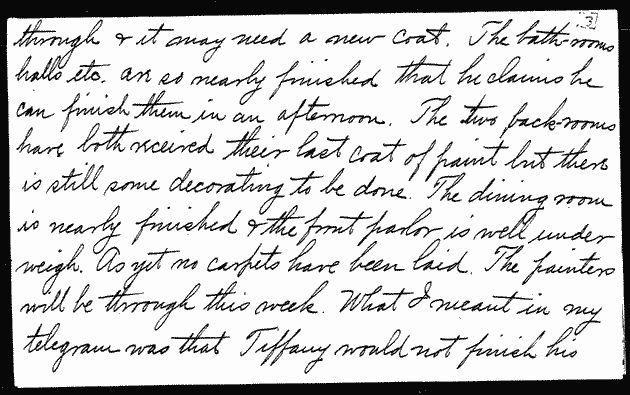 3
through & it may need a new coat. The bath-rooms
halls etc. are so nearly finished that he claims he
can finish them in an afternoon. The two back rooms
have both received their last coat of paint but there
is still some decorating to be done. The dining room
is nearly finished & the front parlor is well under
weigh. As yet no carpets have been laid. The painters
will be through this week. What I meant in my
telegram was that Tiffany would not finish his